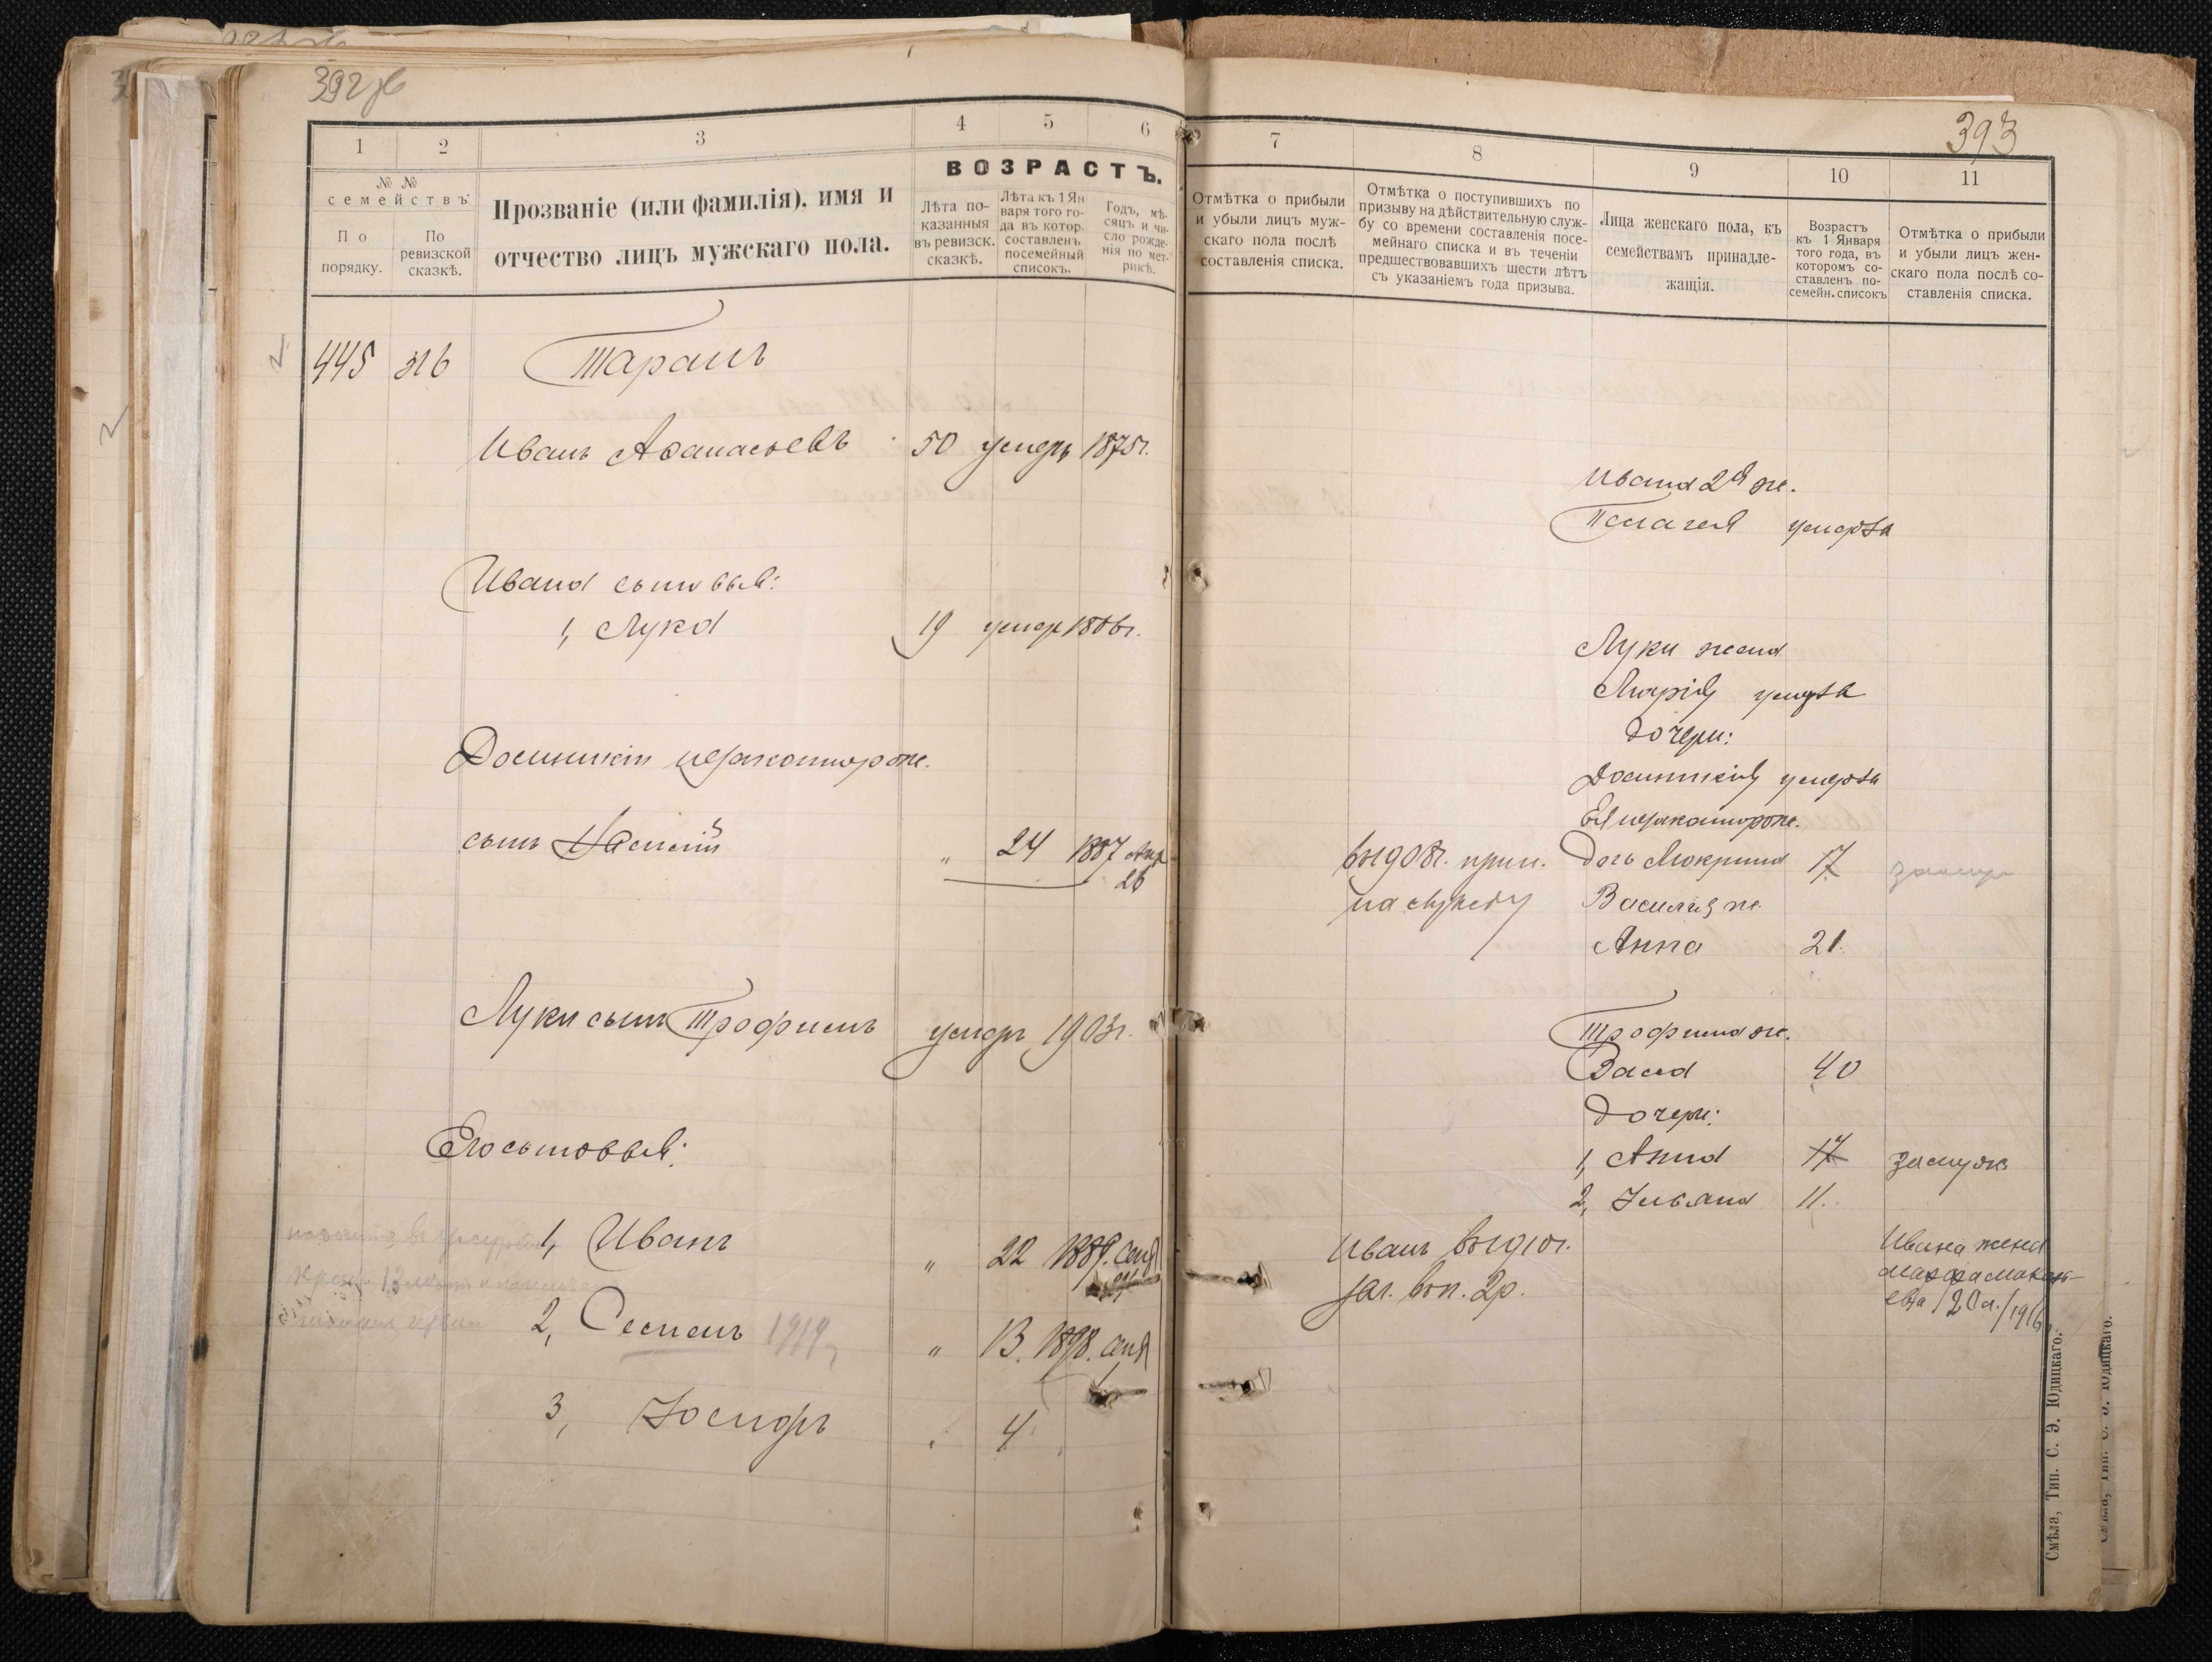 392 об
1
2
3
4
5
6
№ №
семействъ:
По
порядку.
По
ревизской
сказкѣ.
Прозваніе (или фамилія), имя и
отчество лицъ мужскаго пола.
ВОЗРАСТЪ.
Лѣта по-
казанныя
въ ревизск.
сказкѣ.
Лѣта къ 1 Ян
варя того го-
да въ котор.
составленъ
посемейный
списокъ.
Годъ, мѣ-
сяцъ и чи-
сло рожде-
нія по мет-
рикѣ.
445 326
Таранъ
Иванъ Аѳанасьевъ 50 умеръ 1875г.
Ивана сыновья:
1, Лука 19 умер 1886г.
Домникіи незаконнорож.
сынъ Василій " 24 1887 Апр
26
Луки сынъ Трофимъ умеръ 1903г.
Его сыновья:
1, Иванъ " 22 1889. Сен
2, Семенъ 1919 " 13. 1898. Сен
1
3, Іосифъ " 4
393
7
8
9
10
11
Отмѣтка о прибыли
и убыли лицъ муж-
скаго пола послѣ
составленія списка.
Отмѣтка о поступившихъ по
призыву на дѣйствительную служ-
бу со времени составленія посе-
мейнаго списка и въ теченіи
предшествовавшихъ шести лѣтъ
съ указаніемъ года призыва.
Лица женскаго пола, къ
семействамъ принадле-
жащія.
Возрастъ
къ 1 Января
того года, въ
которомъ со-
ставленъ по-
семейн. списокъ
Отмѣтка о прибыли
и убыли лицъ жен-
скаго пола послѣ со-
ставленія списка.
Ивана 2я ж.
Пелагея умерла
Луки жена
Марія умерла
дочери:
Домникія умерла
Ея незаконнорож.
въ 1908г. прин. дочь Мокрина 17 замуж
на службу Василія ж.
Анна 21.
Трофима ж.
Васса 40
дочери:
1, Анна 17 замуж
2, Ульяна 11.
Иванъ въ 1910г.
зач. въ оп. 2р.
Ивана жена
Марфа Макаь-
ева /20 л./1916
Смѣла, Тип. С. Э. Юдицкаго.